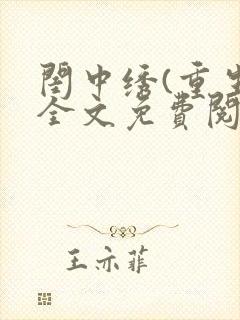 閨中绣(重生
全文免費閱
王亦菲